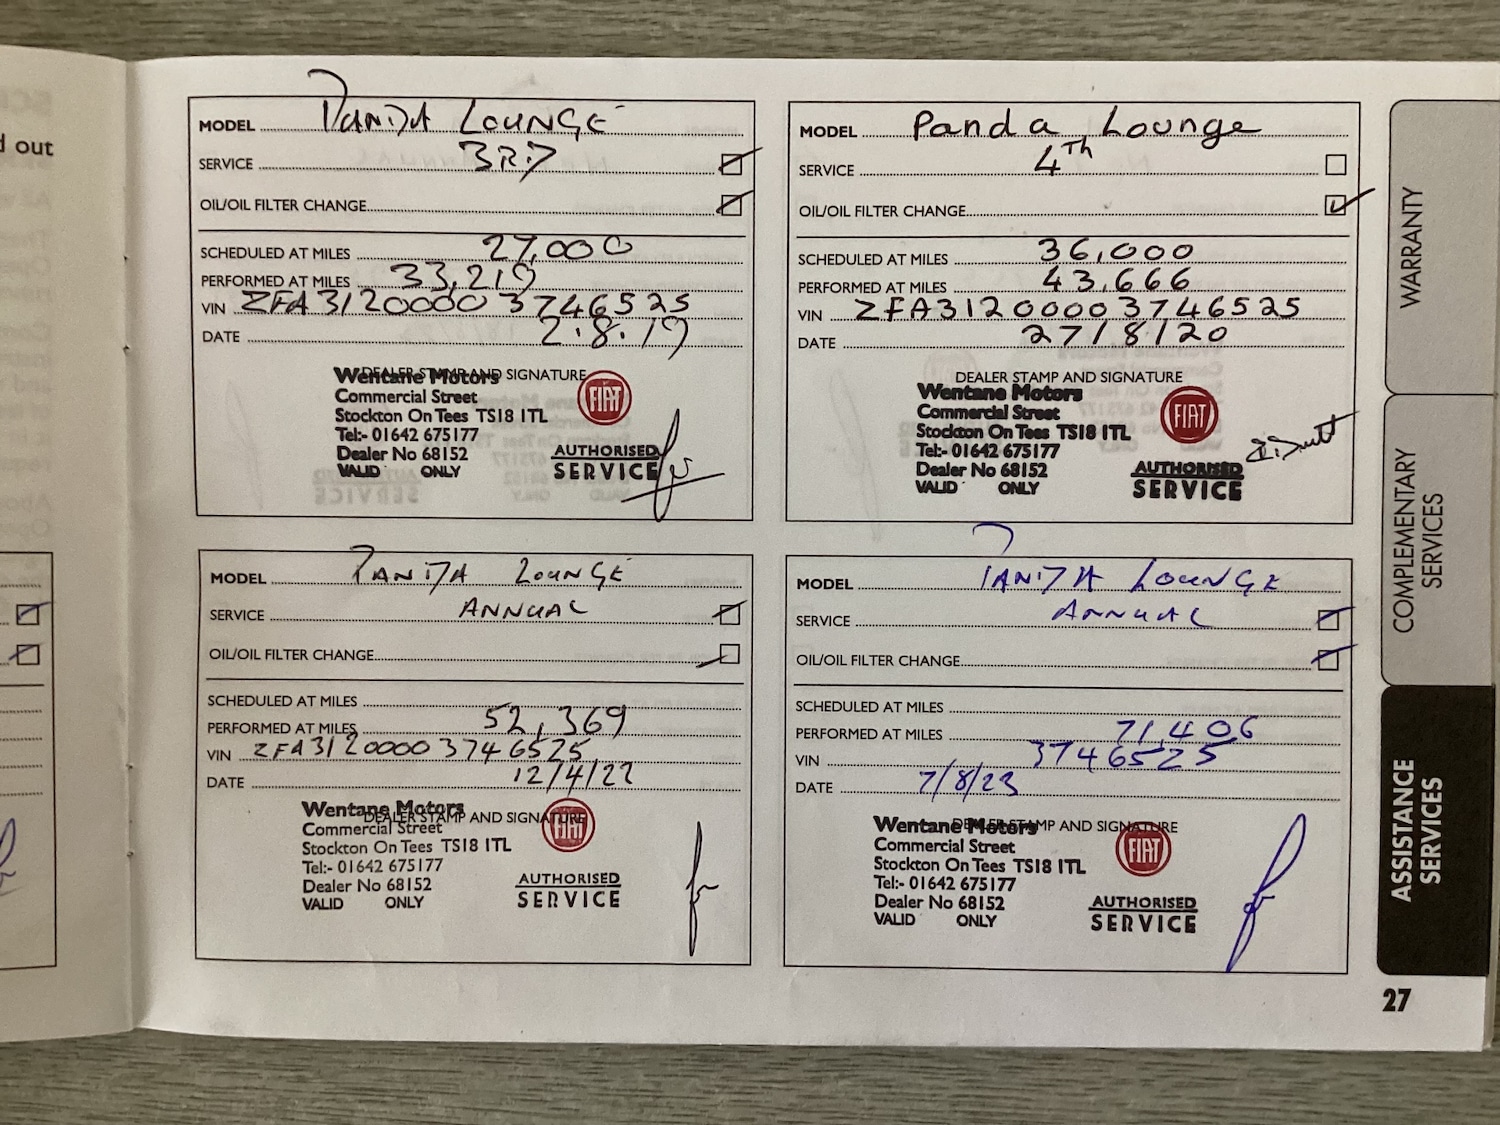 d out
MODEL PANDA LOUNGE
SERVICE 3RD
OIL/OIL FILTER CHANGE
SCHEDULED AT MILES 27,000
PERFORMED AT MILES 33,219
VIN ZFA31200003746525
DATE 2.8.19
DEALER STAMP AND SIGNATURE
Wentane Motors
Commercial Street
Stockton On Tees TS18 1TL
Tel:- 01642 675177
Dealer No 68152
VALID ONLY
FIAT
AUTHORISED
SERVICE
MODEL Panda Lounge
SERVICE 4TH
OIL/OIL FILTER CHANGE
SCHEDULED AT MILES 36,000
PERFORMED AT MILES 43,666
VIN ZFA31200003746525
DATE 27/8/20
DEALER STAMP AND SIGNATURE
Wentane Motors
Commercial Street
Stockton On Tees TS18 1TL
Tel:- 01642 675177
Dealer No 68152
VALID ONLY
FIAT
AUTHORISED
SERVICE
MODEL PANDA LOUNGE
SERVICE ANNUAL
OIL/OIL FILTER CHANGE
SCHEDULED AT MILES
PERFORMED AT MILES 52,369
VIN ZFA31200003746525
DATE 12/4/22
DEALER STAMP AND SIGNATURE
Wentane Motors
Commercial Street
Stockton On Tees TS18 1TL
Tel:- 01642 675177
Dealer No 68152
VALID ONLY
FIAT
AUTHORISED
SERVICE
MODEL PANDA LOUNGE
SERVICE ANNUAL
OIL/OIL FILTER CHANGE
SCHEDULED AT MILES
PERFORMED AT MILES 71,406
VIN 3746525
DATE 7/8/23
DEALER STAMP AND SIGNATURE
Wentane Motors
Commercial Street
Stockton On Tees TS18 1TL
Tel:- 01642 675177
Dealer No 68152
VALID ONLY
FIAT
AUTHORISED
SERVICE
WARRANTY
COMPLEMENTARY
SERVICES
ASSISTANCE
SERVICES
27